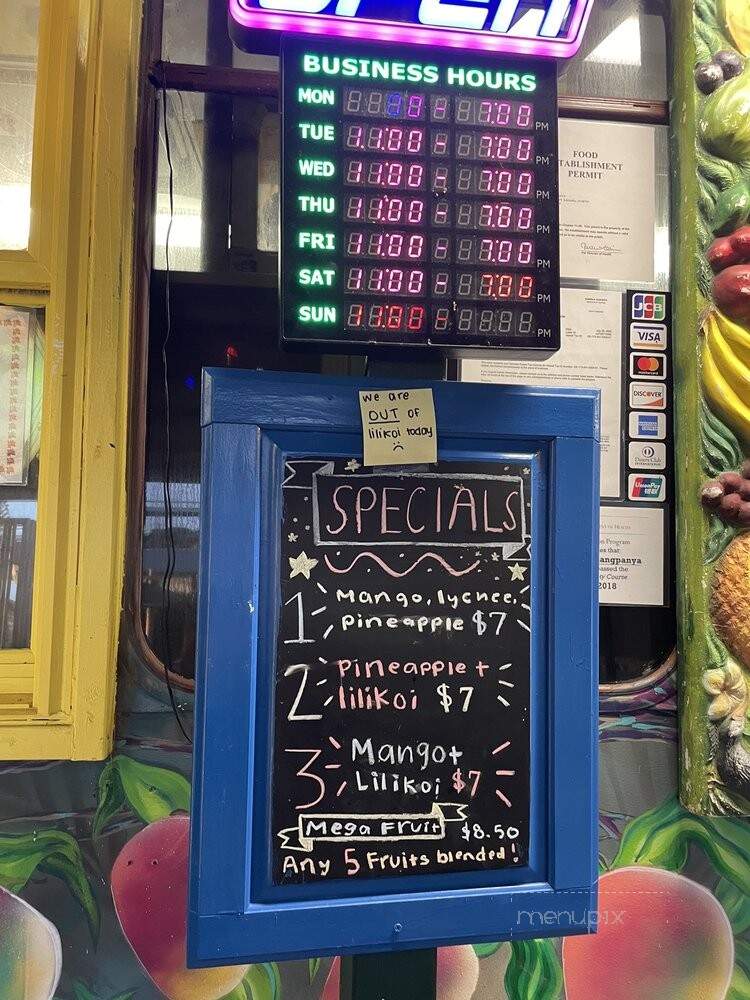 OPEN
BUSINESS HOURS
MON 00 - 7:00 PM
TUE 11:00 - 7:00 PM
WED 11:00 - 7:00 PM
THU 11:00 - 7:00 PM
FRI 11:00 - 7:00 PM
SAT 11:00 - 7:00 PM
SUN 11:00 - PM
FOOD
TABLISHMENT
PERMIT
JCB
VISA
mastercard
DISCOVER
Diners Club
INTERNATIONAL
UnionPay
on Program
es that
angpanya
assed the
ty Course
2018
we are
OUT of
lilikoi today
SPECIALS
1 Mango, lychee,
pineapple $7
2 pineapple +
lilikoi $7
3 Mango +
Lilikoi $7
Mega Fruit $8.50
Any 5 Fruits blended!
menupix